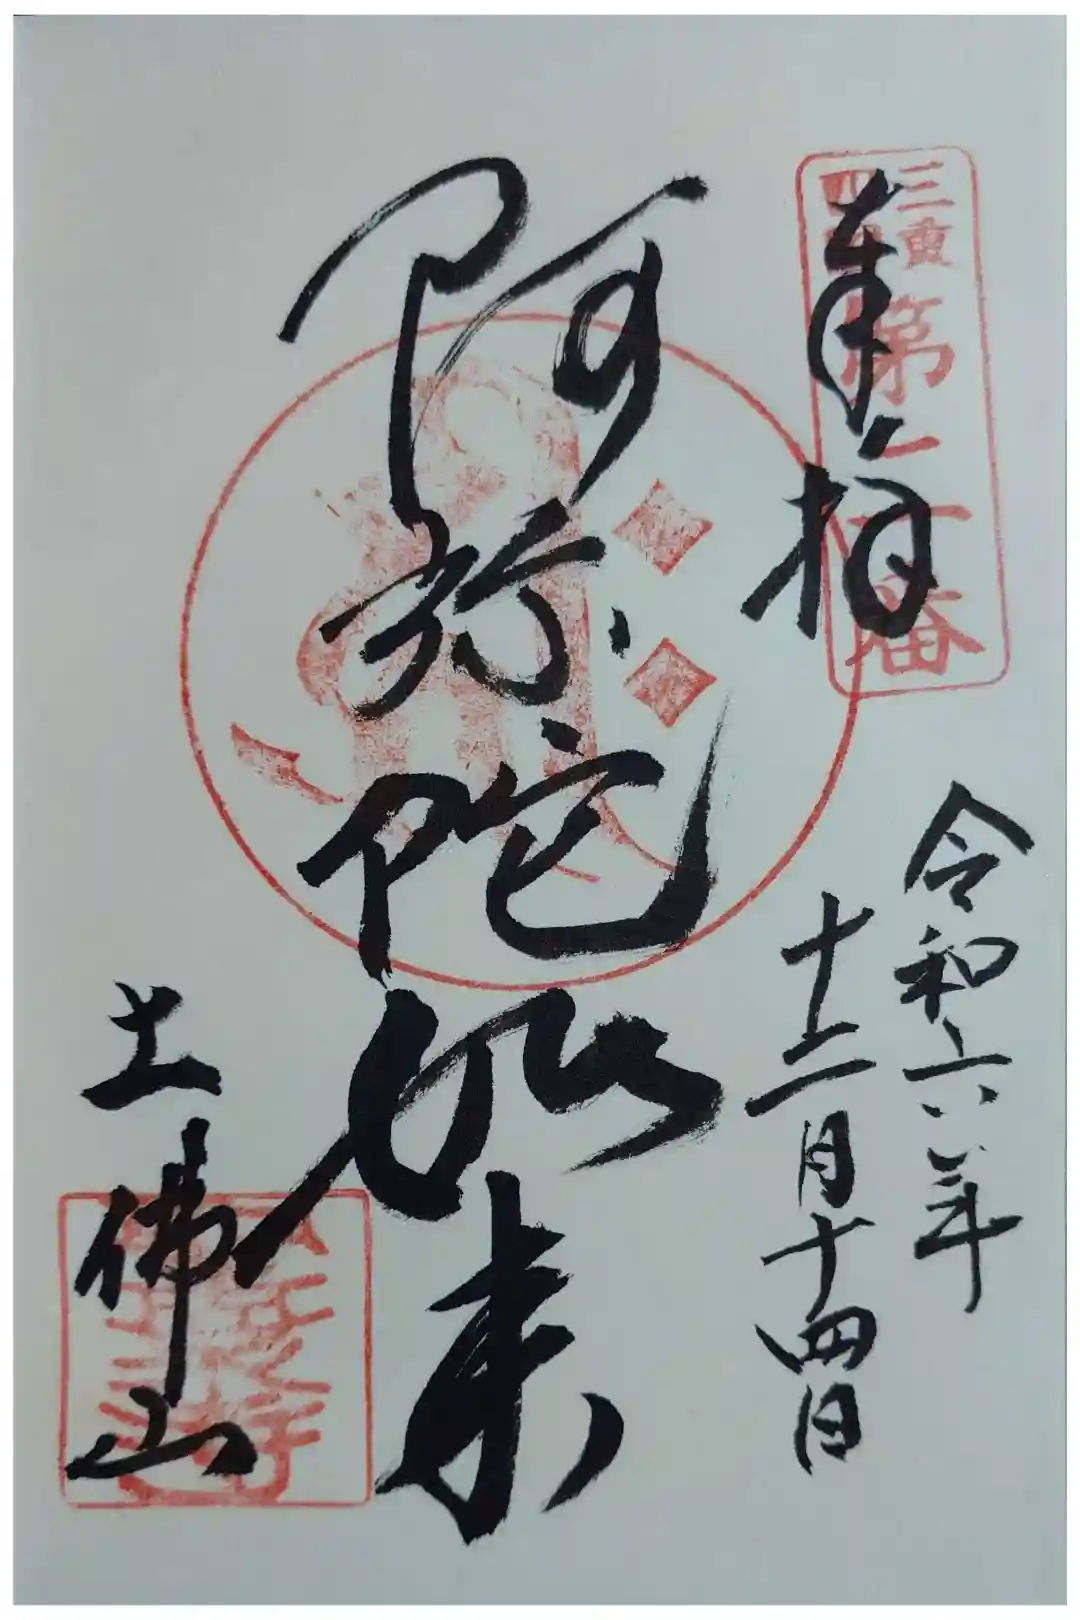 三重
四国
奉拝
令和六年
十二月十四日
阿弥陀如来
土佛山